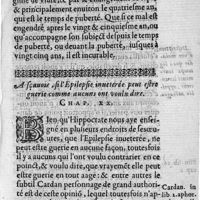 & principalement enuiron le quatriesme an,
qui est le temps de puberté. Que si ce mal est
engendré apres le vingt & cinquiesme an, ou
qu'accompagne son subiect depuis le temps
de puberté, ou deuant la puberté, iusques à
vingt cinq ans, il est incurable.
A sçauoir, si l'Epilepsie inueterée peut estre
guerie comme aucuns ont voulu dire.
CHAP. XX.
BIen qu'Hippocrate nous aye enseigné
en plusieurs endroits de ses œuures,
que l'Epilepsie inueterée, ne
peut estre guerie en aucune façon, toutesfois
il y a aucuns qui ont voulu contrarier en ce
poinct, & vouloir dire, que veritablement elle
peut estre guerie en tout aage: & entre autres le
subtil Cardan personnage de grand authorité
est de ceste opinion, lequel toutesfois n'al-
Cardan. in
lib 2. aphor.